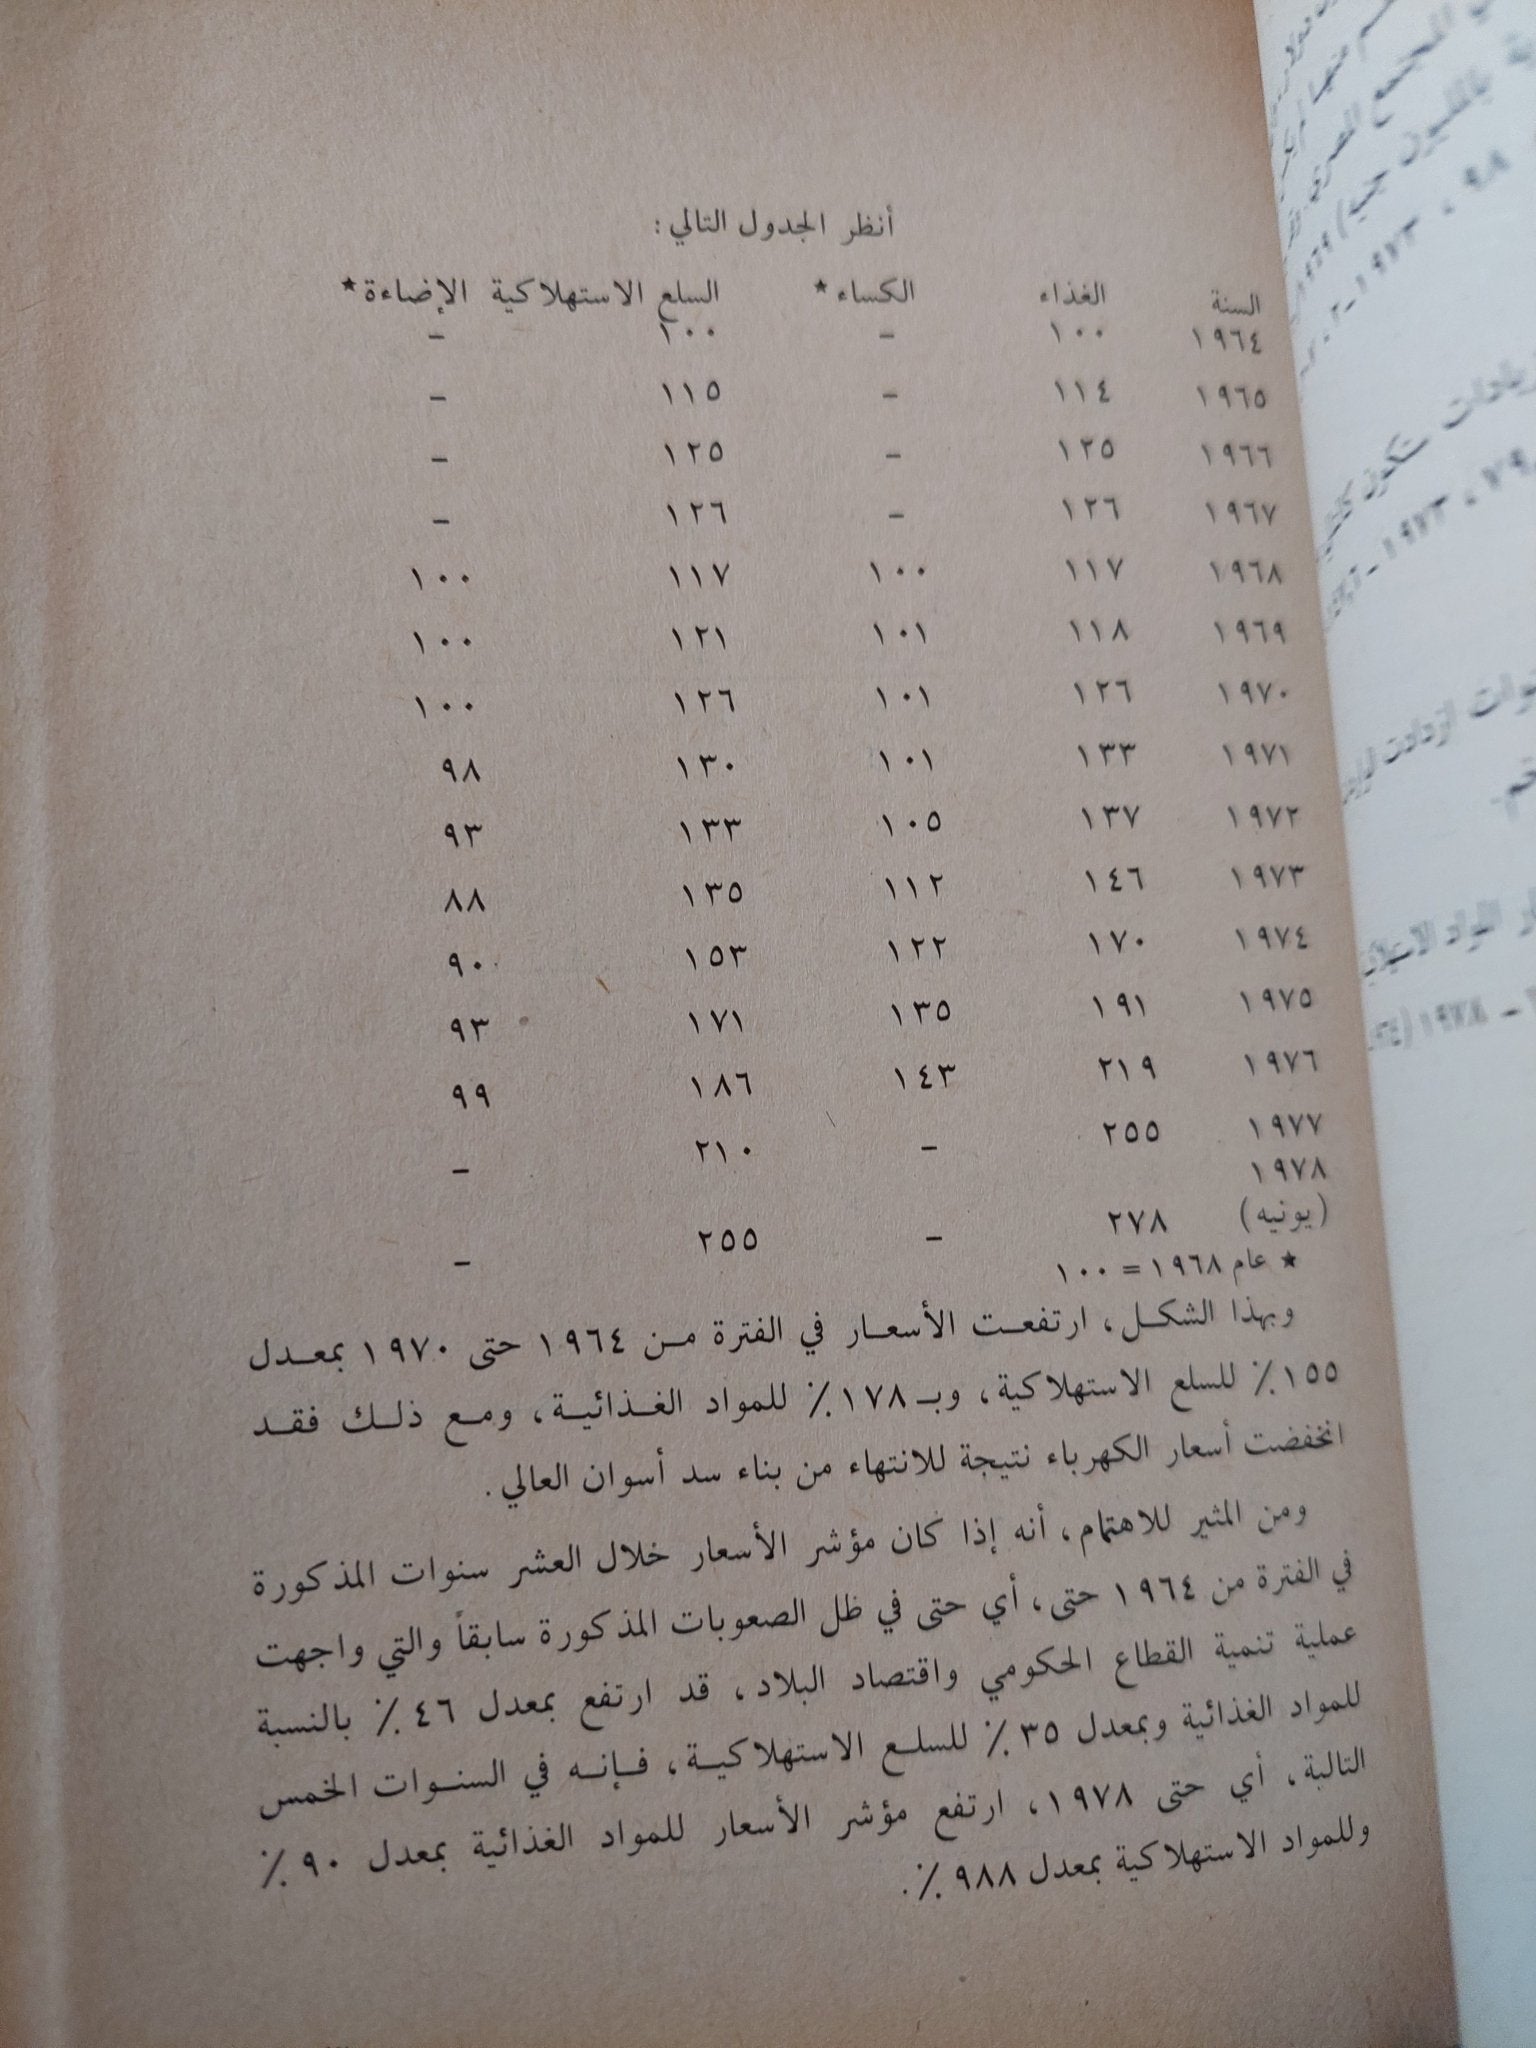 أنظر الجدول التالي :
السنة الغذاء الكساء * السلع الاستهلاكية الإضاءة *
١٩٦٤ ١٠٠ – ١٠٠ –
١٩٦٥ ١١٤ – ١١٥ –
١٩٦٦ ١٢٥ – ١٢٥ –
١٩٦٧ ١٢٦ – ١٢٦ –
١٩٦٨ ١١٧ ١٠٠ ١١٧ ١٠٠
١٩٦٩ ١١٨ ١٠١ ١٢١ ١٠٠
١٩٧٠ ١٢٦ ١٠١ ١٢٦ ١٠٠
١٩٧١ ١٣٣ ١٠١ ١٣٠ ٩٨
١٩٧٢ ١٣٧ ١٠٥ ١٣٣ ٩٣
١٩٧٣ ١٤٦ ١١٢ ١٣٥ ٨٨
١٩٧٤ ١٧٠ ١٢٢ ١٥٣ ٩٠
١٩٧٥ ١٩١ ١٣٥ ١٧١ ٩٣
١٩٧٦ ٢١٩ ١٤٣ ١٨٦ ٩٩
١٩٧٧ ٢٥٥ – ٢١٠ –
١٩٧٨
(يونيه) ٢٧٨ – ٢٥٥ –
* عام ١٩٦٨ = ١٠٠
وبهذا الشكل ، ارتفعت الأسعار في الفترة من ١٩٦٤ حتى ١٩٧٠ بمعدل
١٥٥٪ للسلع الاستهلاكية ، وبـ ١٧٨٪ للمواد الغذائية ، ومع ذلك فقد
انخفضت أسعار الكهرباء نتيجة للانتهاء من بناء سد أسوان العالي .
ومن المثير للاهتمام ، أنه إذا كان مؤشر الأسعار خلال العشر سنوات المذكورة
في الفترة من ١٩٦٤ حتى ، أي حتى في ظل الصعوبات المذكورة سابقاً والتي واجهت
عملية تنمية القطاع الحكومي واقتصاد البلاد ، قد ارتفع بمعدل ٤٦٪ بالنسبة
للمواد الغذائية وبمعدل ٣٥٪ للسلع الاستهلاكية ، فإنه في السنوات الخمس
التالية ، أي حتى ١٩٧٨ ، ارتفع مؤشر الأسعار للمواد الغذائية بمعدل ٩٠٪
وللمواد الاستهلاكية بمعدل ٩٨٨٪ .